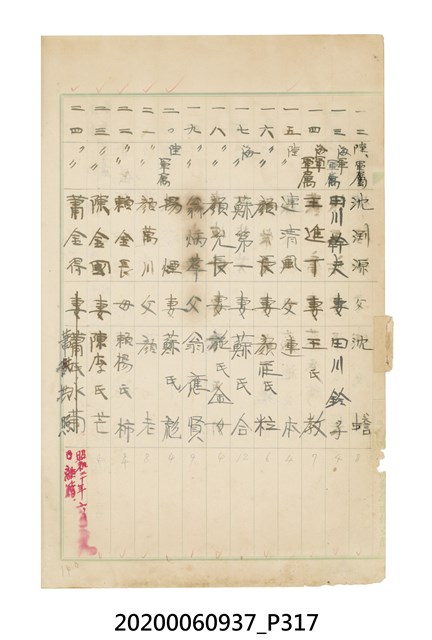 一二 陸、軍屬 沈渕源 父 沈 蟳
一三 海軍軍屬 田川幹夫 妻 田川鈴子
一四 海軍軍屬 王進丁 妻 王氏教
一五 陸〃 連清風 父 連本
一六 〃〃 顏長 妻 顏莊氏粒
一七 海〃 蘇第一 妻 蘇氏合
一八 〃〃 顏光長 妻 施氏金
一九 〃〃 翁炳華 父 翁應賢
二〇 陸軍屬 楊煙 妻 蘇氏彪
二一 〃〃 顏萬川 父 顏老
二二 〃〃 賴金長 母 賴楊氏柿
二三 〃〃 陳金國 妻 陳李氏芒
二四 〃〃 蕭金得 妻 蕭氏水蘭
昭和二十年六
20200060937_P317